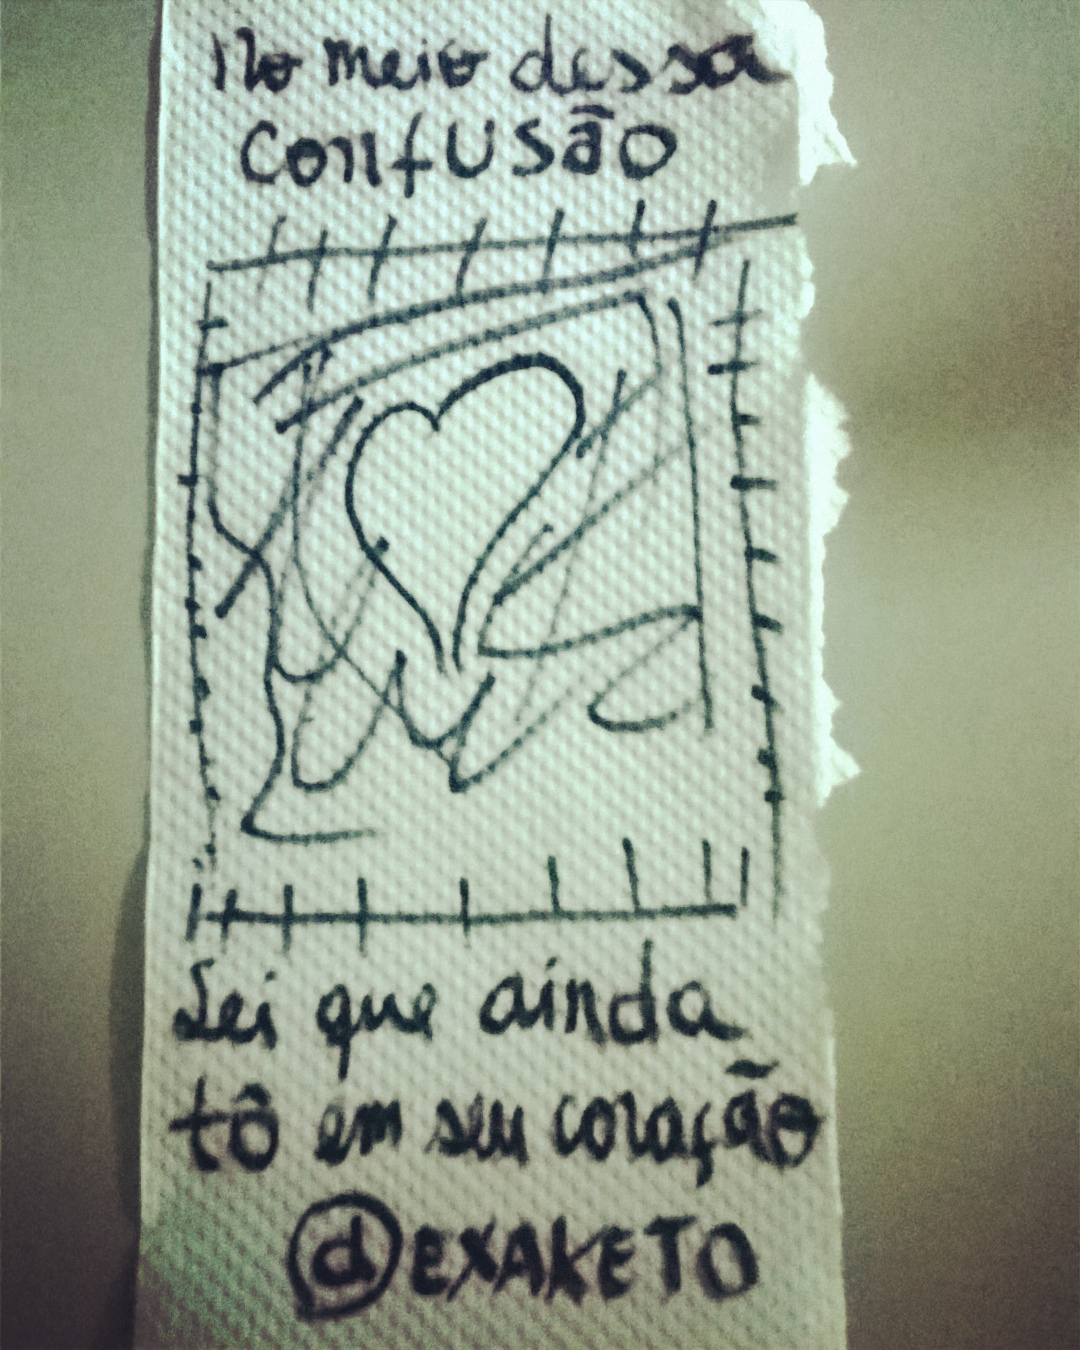 No meio dessa
confusão
Sei que ainda
tô em seu coração
@EXAKETO